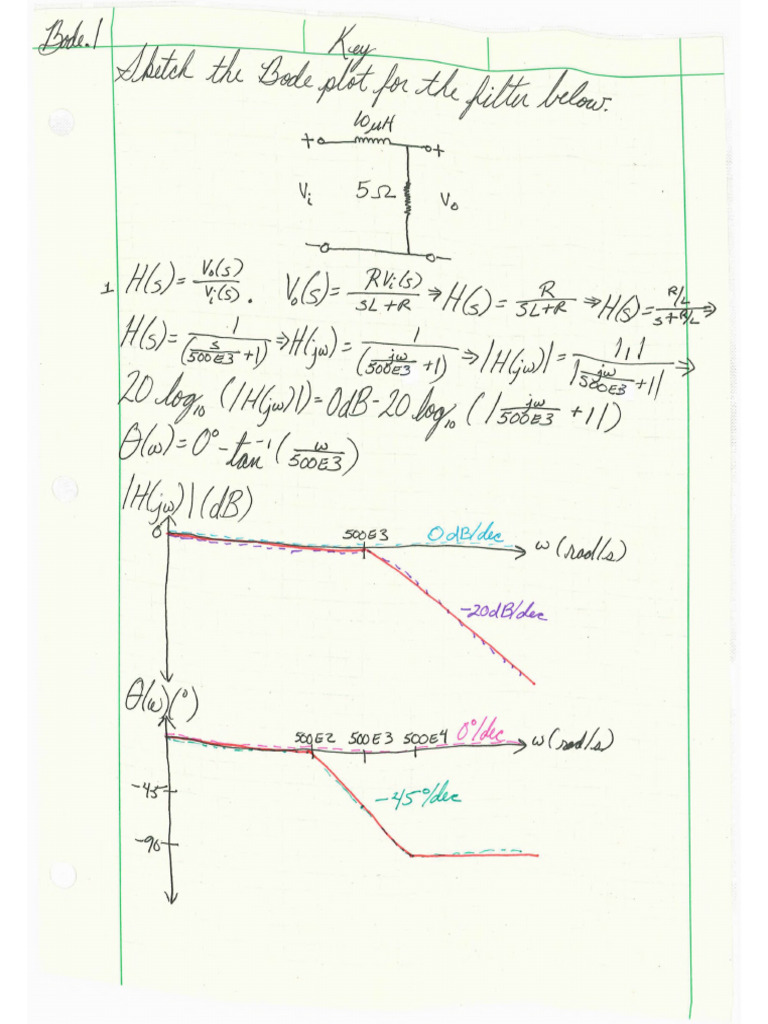 Bode.1
Key
Sketch the Bode plot for the filter below.
10μH
+
+
Vi
5Ω
Vo
-
-
1 H(s)=Vo(s)/Vi(s). Vo(s)=RVi(s)/(sL+R) ⇒ H(s)=R/(sL+R) ⇒ H(s)=(R/L)/(s+R/L) ⇒
H(s)=1/(s/500E3+1) ⇒ H(jω)=1/(jω/500E3+1) ⇒ |H(jω)|=|1|/|jω/500E3+1| ⇒
20 log₁₀(|H(jω)|)=0dB-20 log₁₀(|jω/500E3+1|)
θ(ω)=0°-tan⁻¹(ω/500E3)
|H(jω)|(dB)
0
500E3
0dB/dec
ω(rad/s)
-20dB/dec
θ(ω)(°)
500E2 500E3 500E4
0°/dec
ω(rad/s)
-45
-45°/dec
-90